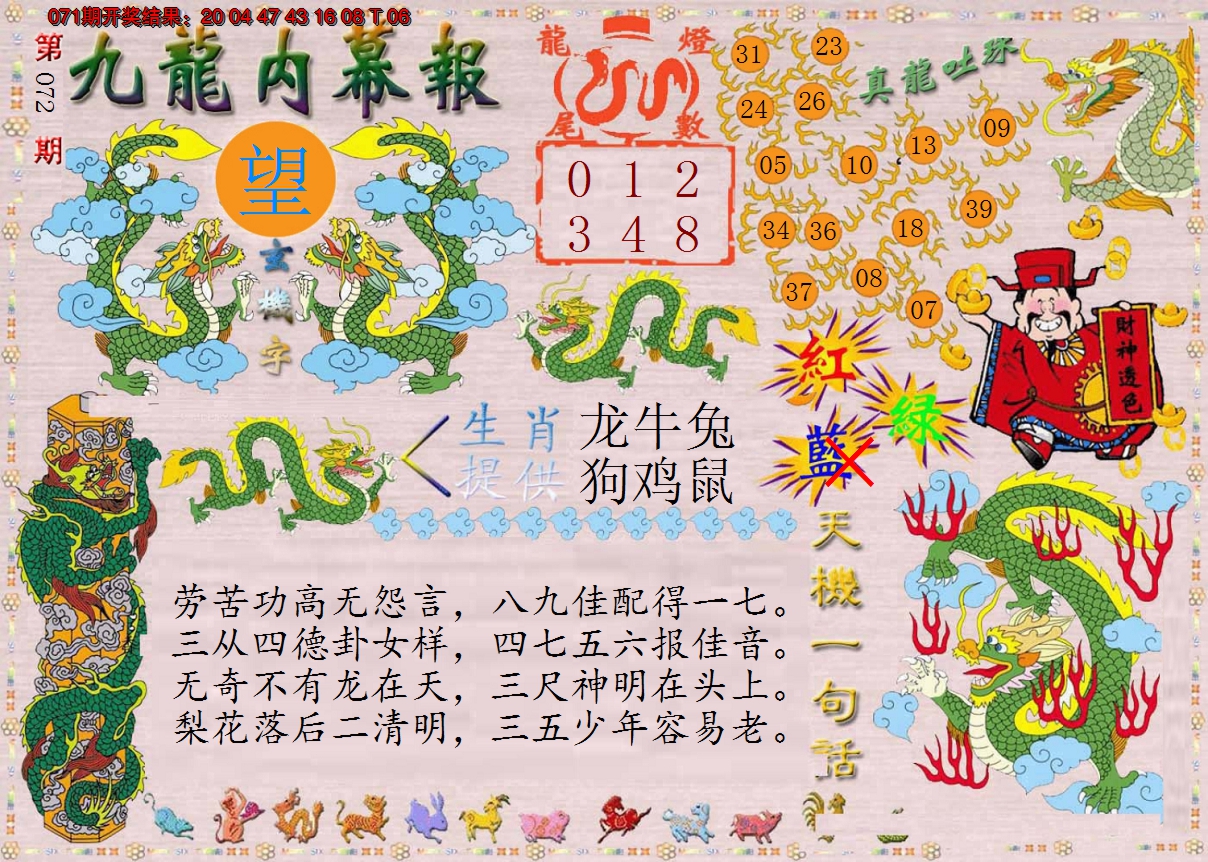 071期开奖结果：20 04 47 43 16 08 T 06
第072期
九龍内幕報
望
玄機字
龍燈
尾數
0 1 2
3 4 8
真龍吐珠
31 23
24 26
05 10 13 09
34 36 18 39
37 08 07
財神透色
紅
綠
藍
生肖 龙牛兔
提供 狗鸡鼠
劳苦功高无怨言，八九佳配得一七。
三从四德卦女样，四七五六报佳音。
无奇不有龙在天，三尺神明在头上。
梨花落后二清明，三五少年容易老。
天機一句话